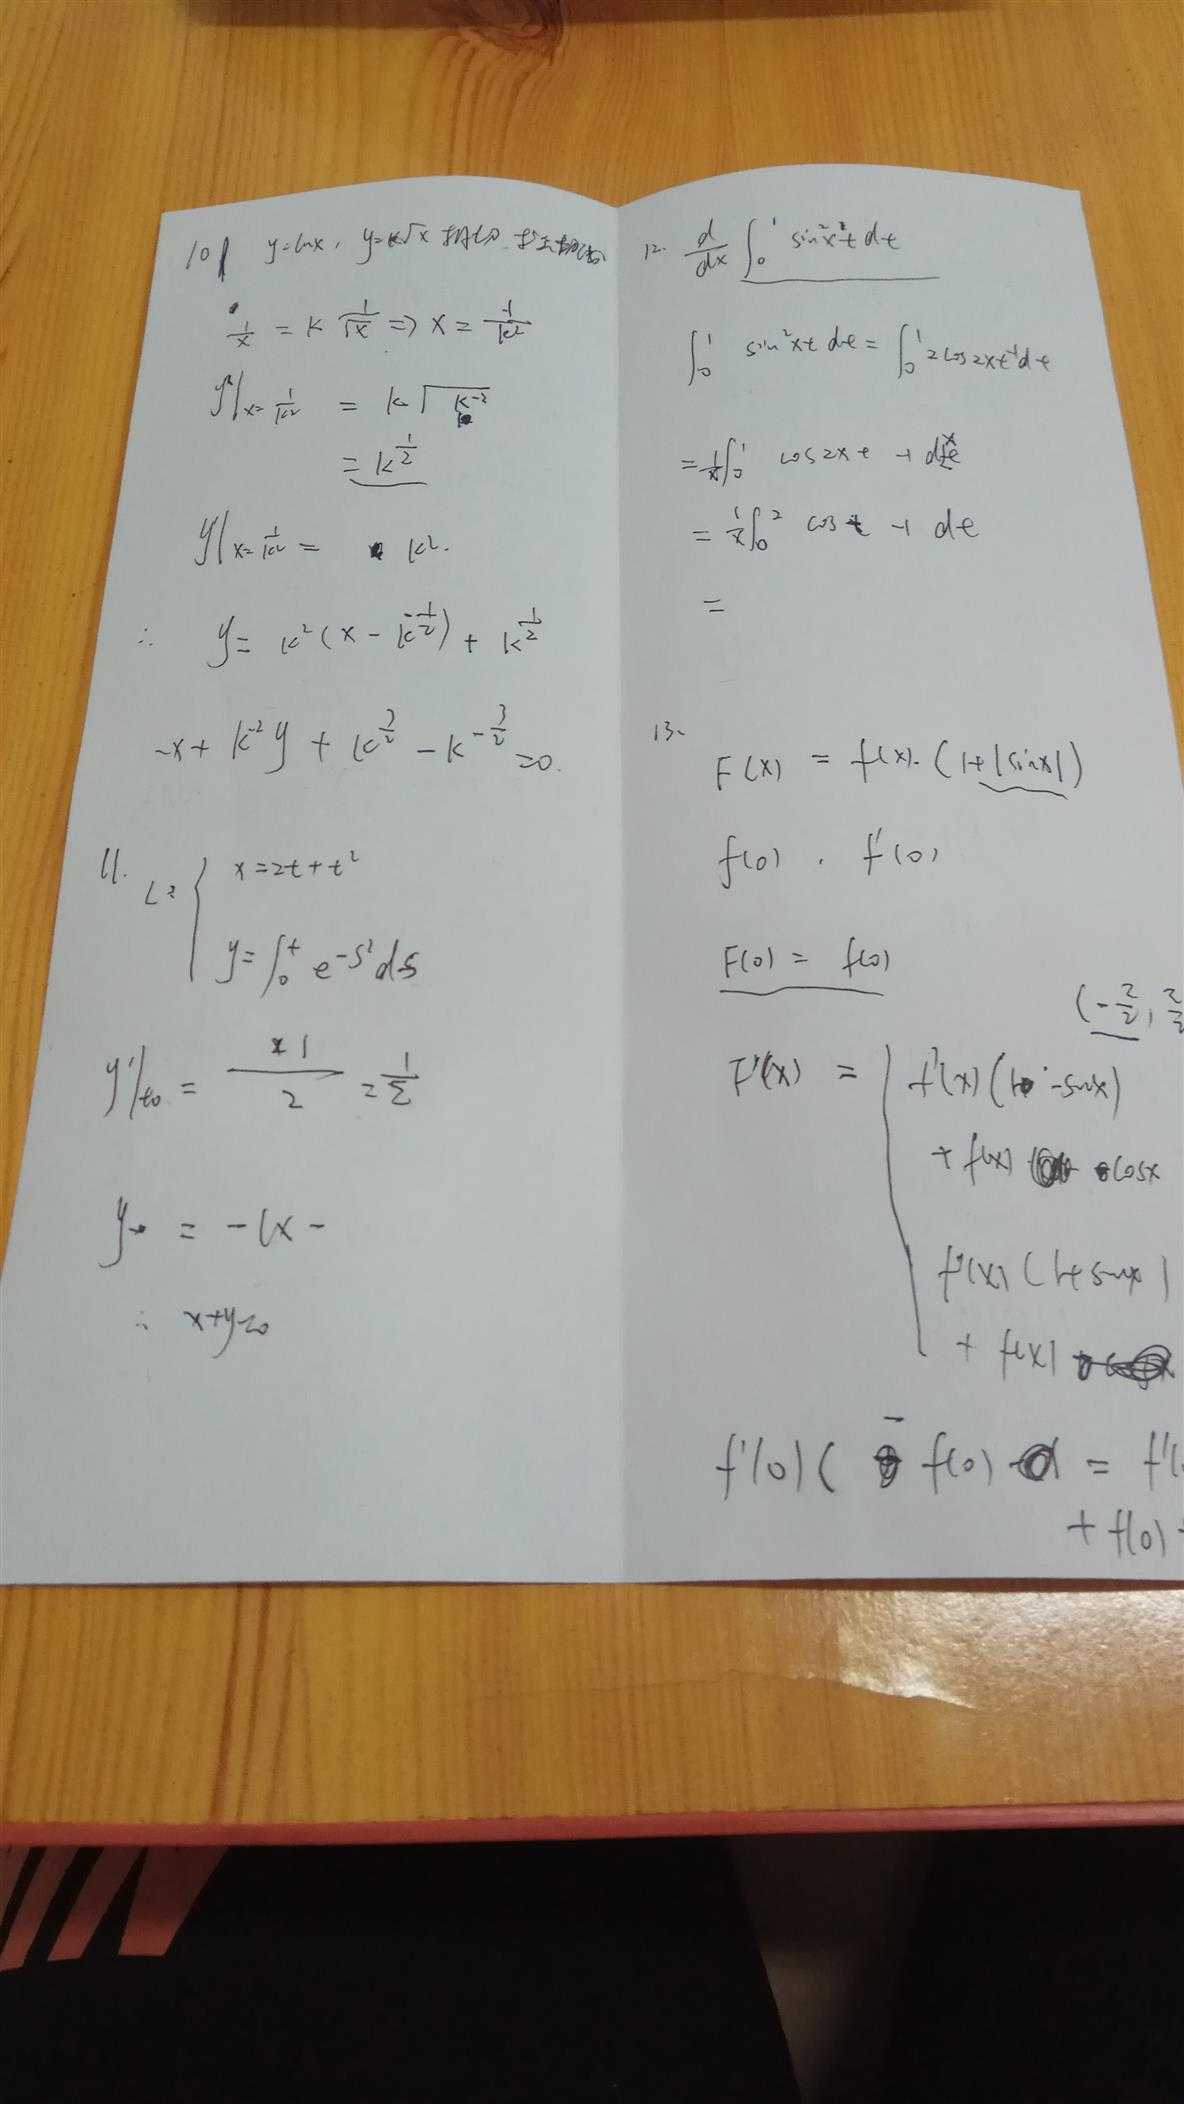 10 y=lnx, y=k√x 相切. 求公切线
1/x = k 1/√x ⇒ x = 1/k²
y|x=1/k² = k√k⁻²
= k^(1/2)
y'|x=1/k² = k².
∴ y = k²(x - k^(-1/2)) + k^(1/2)
-x + k⁻²y + k^(3/2) - k^(-3/2) = 0.
11. L: { x = 2t + t²
y = ∫₀ᵗ e^(-s²) ds
y'|t0 = 1/2 = 1/2
y = -(x -
∴ x+y=0
12. d/dx ∫₀¹ sin²x²t dt
∫₀¹ sin²xt dt = ∫₀¹ 2cos2xt-1dt
= 1/x ∫₀¹ cos2xt -1 dxt
= 1/x ∫₀² cos t -1 dt
=
13.
F(x) = f(x). (1+|sinx|)
f(0) . f'(0)
F(0) = f(0)
(-π/2, π/2
F'(x) = f'(x)(1-sinx)
+ f(x) cosx
f'(x)(1+sinx)
+ f(x)
f'(0)( - f(0) = f'(
+ f(0) +